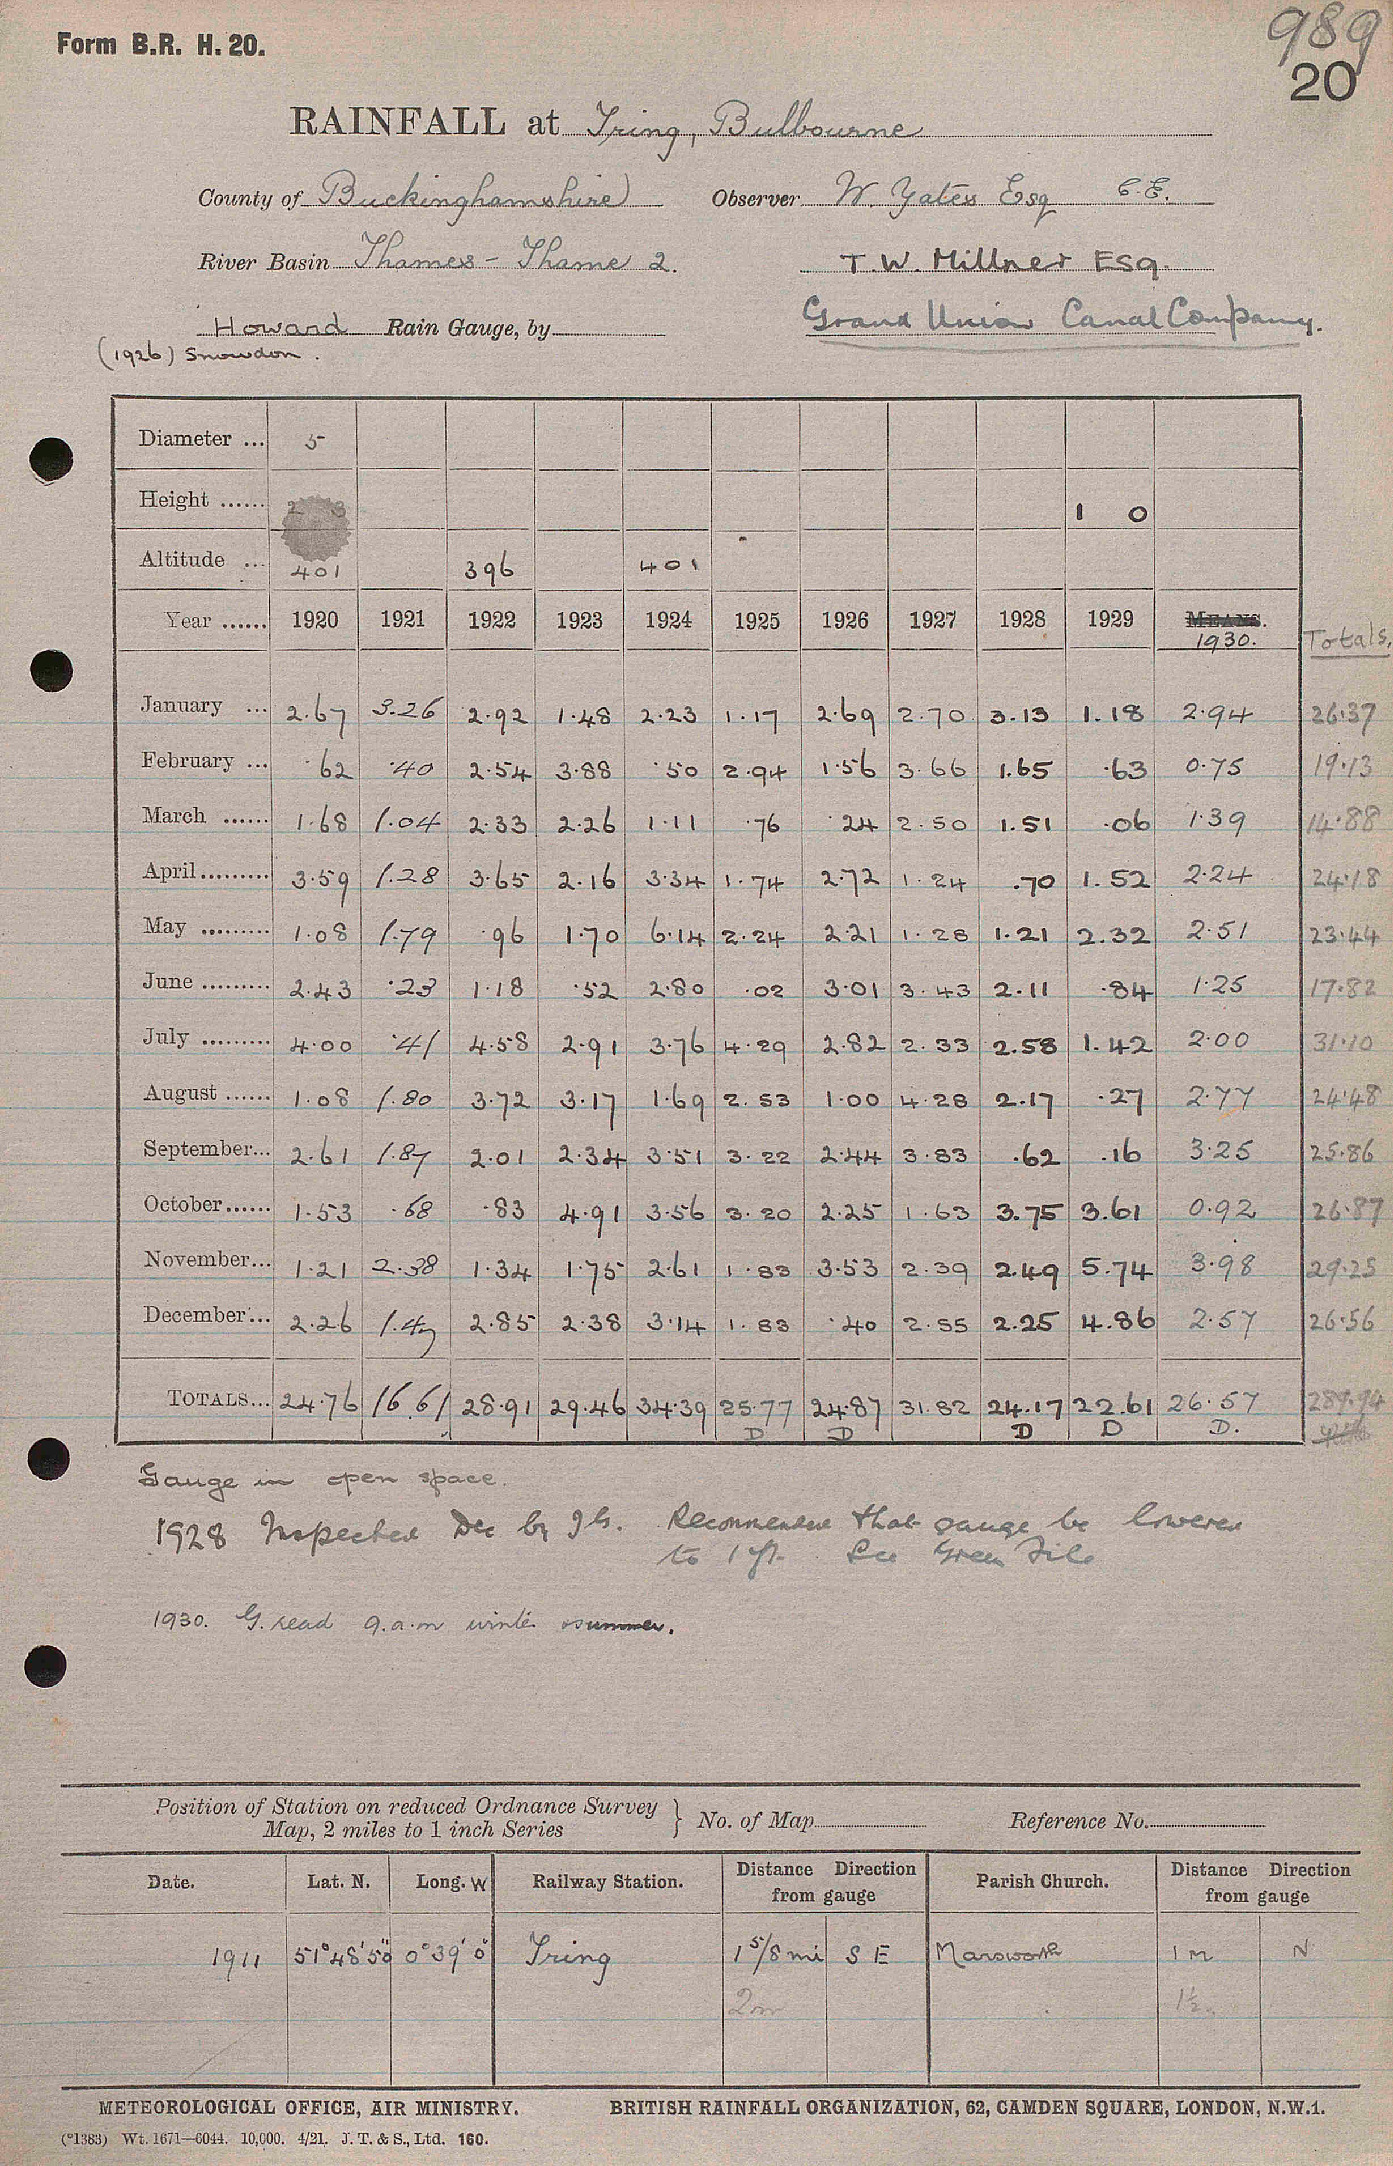 Form B.R. H. 20.
989
20
RAINFALL at Tring, Bulbourne
County of Buckinghamshire Observer W. Yates Esq C.E.
River Basin Thames - Thame 2. T. W. Millner Esq.
Howard Rain Gauge, by Grand Union Canal Company.
(1926) Snowdon.
Diameter ... 5
Height ...... 2 3 1 0
Altitude ... 401 396 401
Year ...... 1920 1921 1922 1923 1924 1925 1926 1927 1928 1929 MEANS. 1930. Totals.
January ... 2.67 3.26 2.92 1.48 2.23 1.17 2.69 2.70 3.13 1.18 2.94 26.37
February ... .62 .40 2.54 3.88 .50 2.94 1.56 3.66 1.65 .63 0.75 19.13
March ...... 1.68 1.04 2.33 2.26 1.11 .76 .24 2.50 1.51 .06 1.39 14.88
April ......... 3.59 1.28 3.65 2.16 3.34 1.74 2.72 1.24 .70 1.52 2.24 24.18
May ......... 1.08 1.79 .96 1.70 6.14 2.24 2.21 1.28 1.21 2.32 2.51 23.44
June ......... 2.43 .23 1.18 .52 2.80 .02 3.01 3.43 2.11 .84 1.25 17.82
July ......... 4.00 .41 4.58 2.91 3.76 4.29 2.82 2.33 2.58 1.42 2.00 31.10
August ...... 1.08 1.80 3.72 3.17 1.69 2.53 1.00 4.28 2.17 .27 2.77 24.48
September... 2.61 1.87 2.01 2.34 3.51 3.22 2.44 3.83 .62 .16 3.25 25.86
October...... 1.53 .68 .83 4.91 3.56 3.20 2.25 1.63 3.75 3.61 0.92 26.87
November... 1.21 2.38 1.34 1.75 2.61 1.83 3.53 2.39 2.49 5.74 3.98 29.25
December... 2.26 1.47 2.85 2.38 3.14 1.83 .40 2.55 2.25 4.86 2.57 26.56
TOTALS... 24.76 16.61 28.91 29.46 34.39 25.77 24.87 31.82 24.17 22.61 26.57 289.94
D D D D D.
Gauge in open space.
1928 Inspected Dec by J.G. Recommended that gauge be lowered
to 1 ft. See Green File
1930. G. read 9.a.m winter summer.
Position of Station on reduced Ordnance Survey
Map, 2 miles to 1 inch Series } No. of Map Reference No.
Date. Lat. N. Long. W Railway Station. Distance Direction from gauge Parish Church. Distance Direction from gauge
1911 51°48'50" 0°39'0" Tring 1 5/8 mi S E Marsworth 1 m N
2m 1½
METEOROLOGICAL OFFICE, AIR MINISTRY. BRITISH RAINFALL ORGANIZATION, 62, CAMDEN SQUARE, LONDON, N.W.1.
(*1383) Wt. 1671—6044. 10,000. 4/21. J. T. & S., Ltd. 160.